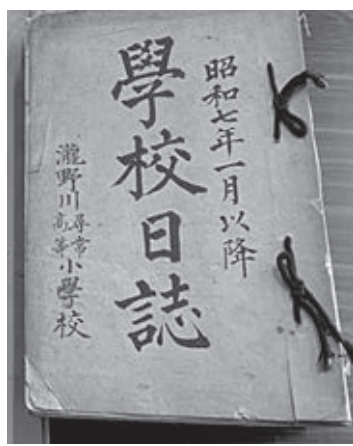 昭和七年一月以降
學校日誌
瀧野川尋常高等小學校